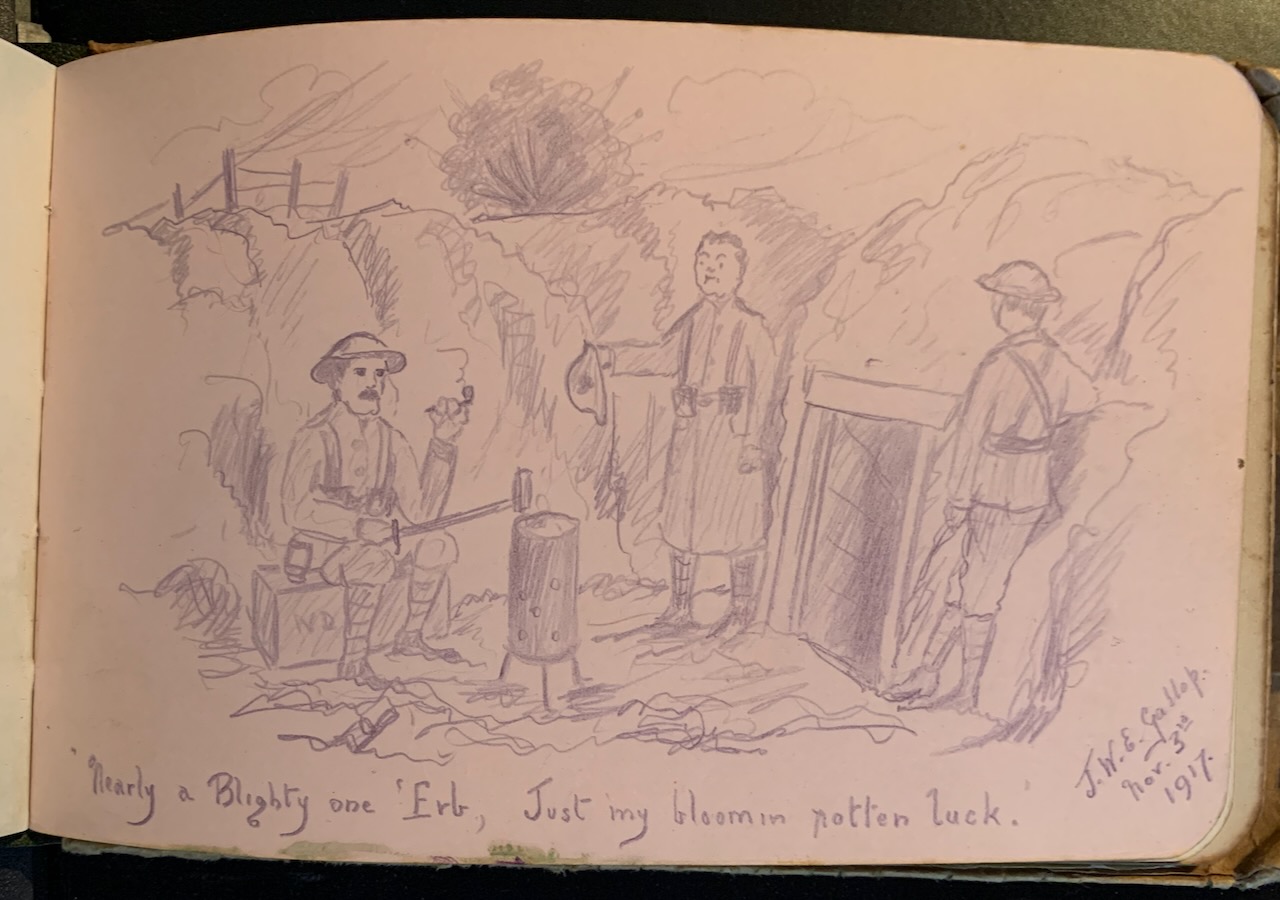 "Nearly a Blighty one 'Erb, Just my bloomin rotten luck."
J.W.E. Gallop.
Nov. 3rd
1917.